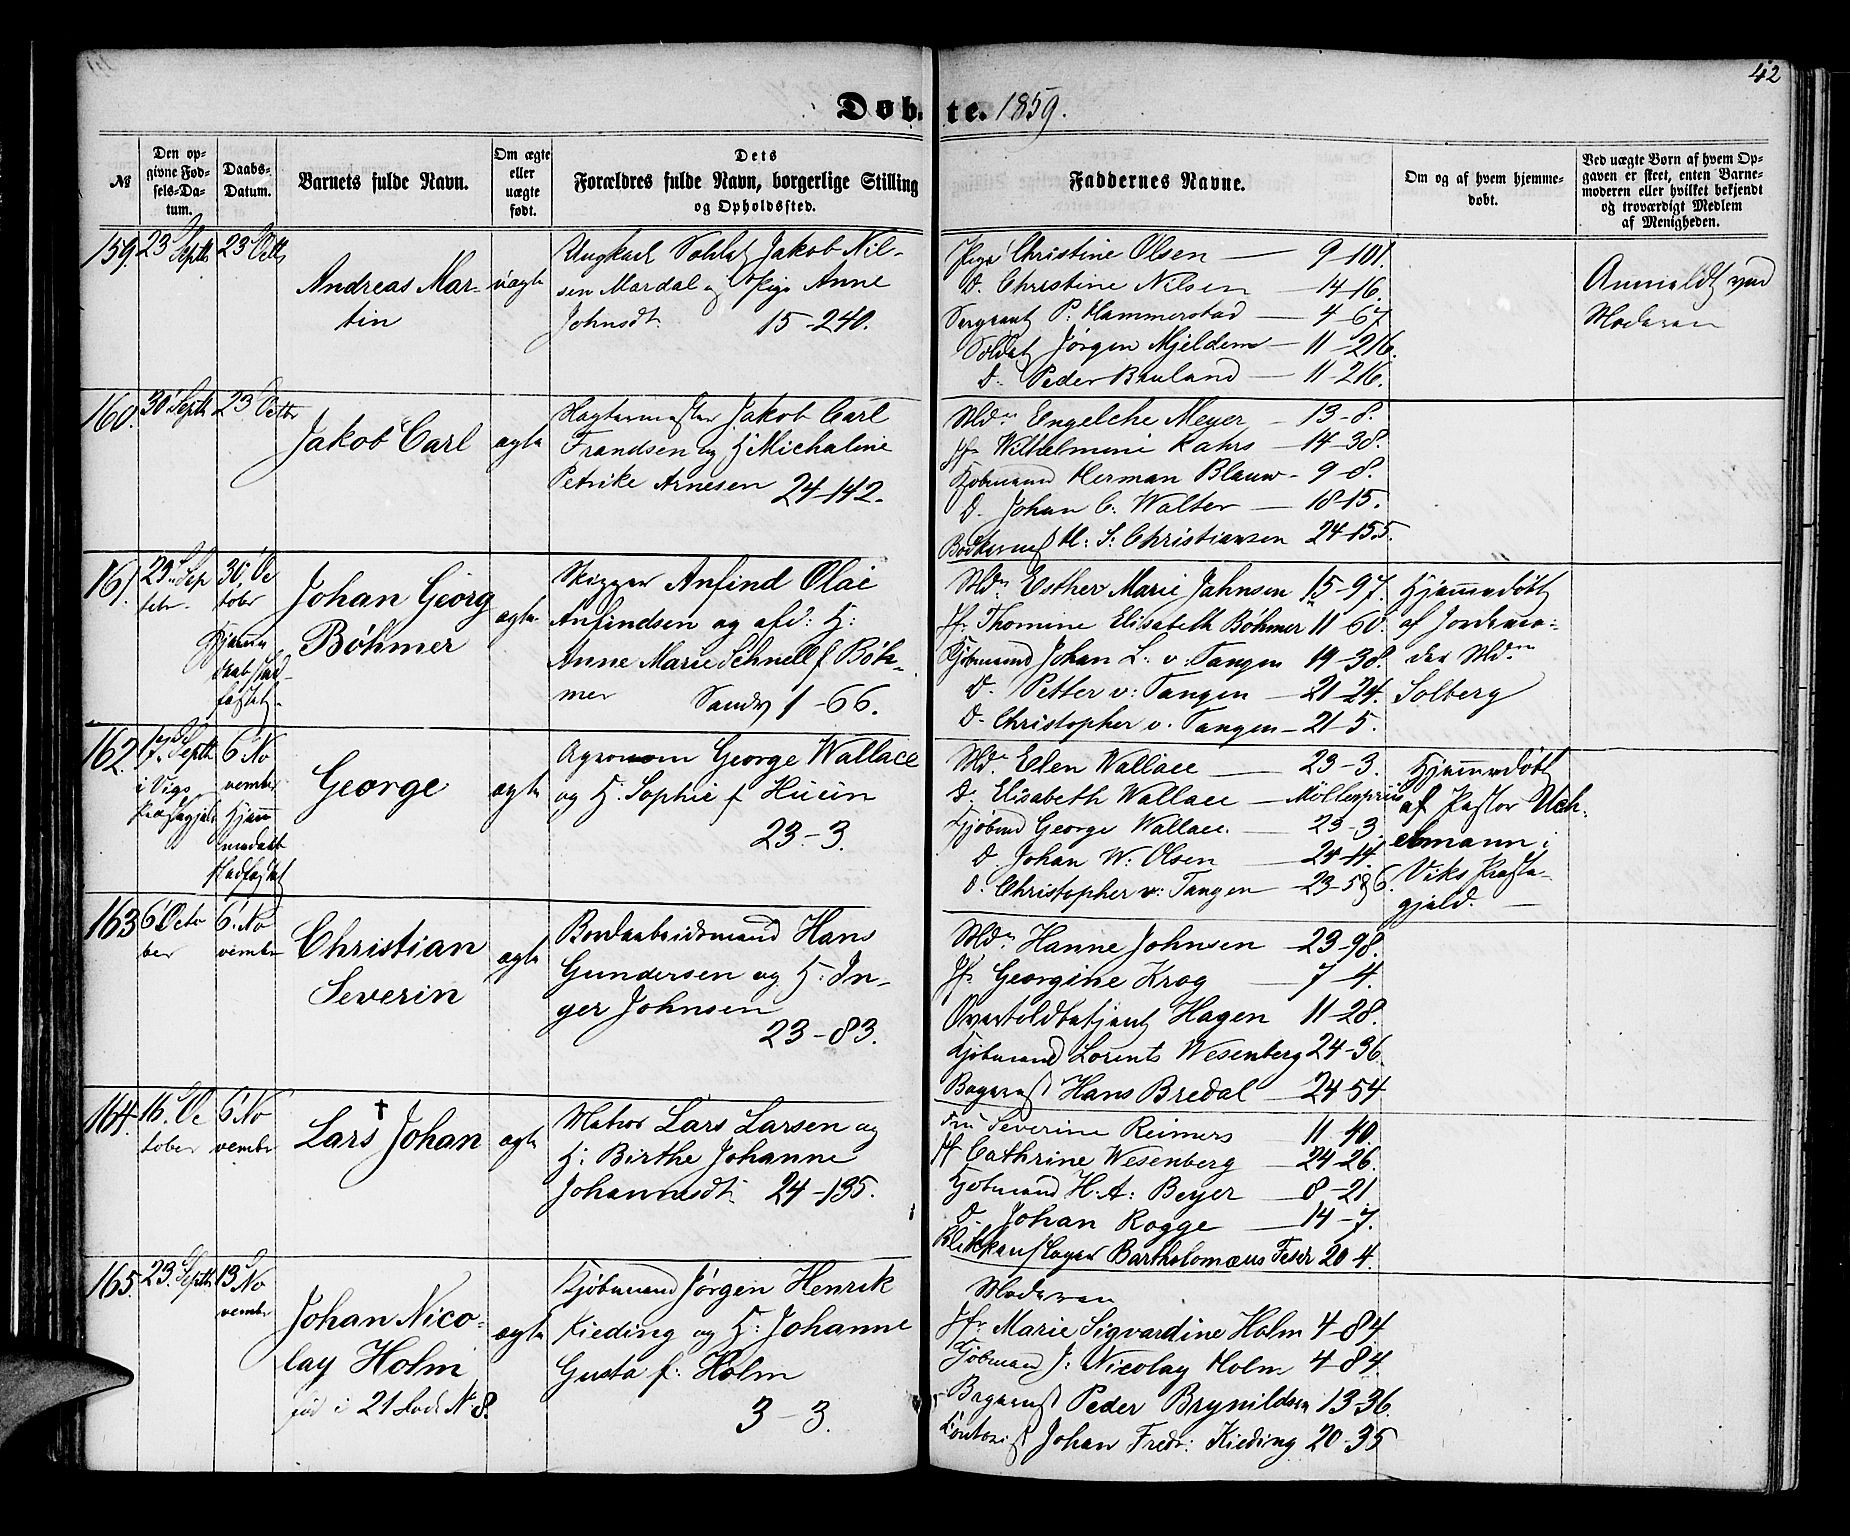 42
Døbte. 1859.
№
Den opgivne Fødsels-Datum.
Daabs-Datum.
Barnets fulde Navn.
Om ægte eller uægte født.
Dets Forældres fulde Navn, borgerlige Stilling og Opholdssted.
Faddernes Navne.
Om og af hvem hjemmedøbt.
Ved uægte Børn af hvem Opgaven er skeet, enten Barnemoderen eller hvilket bekjendt og troværdigt Medlem af Menigheden.
159. 23 Septb 23 Octb
Andreas Martin
uægte
Ungkarl Soldat Jakob Nil-
sen Mardal og Pige Anne
Johnsdt. 15-240.
Pige Christine Olsen — 9-101.
D. Christine Nilsen — 14-16.
Sergeant P. Hammerstad — 4-67
Soldat Jørgen Mjeldem — 11-216.
D. Peder Bauland — 11-216.
Anmeldt ved
Moderen
160. 30 Septb 23 Octbr
Jakob Carl
ægte
Jakob Carl
Frandsen og H. Michaline
Petrike Arnesen 24-142.
Md. Engelche Meyer — 13-8.
Jfr Wilhelmine Rahrs — 14-38.
Kjøbmand Herman Blauw — 9-8.
D. Johan C. Walter — 18-15.
Bødkermst M: S: Christiansen 24-155.
161. 29 Septebr. 30 October
Hjemmedaab stadfæstet.
Johan Georg
Bøhmer
ægte
Skipper Anfind Olai
Anfindsen og afd: H:
Anne Marie Schnell f Bøh-
mer Sandv 1-66.
Md. Esther Marie Jahnsen 15-97.
Jfr. Thomine Elisabeth Bøhmer 11-60.
Kjøbmand Johan L. v: Tangen 14-38.
D. Petter v: Tangen — 21-24.
D. Christopher v. Tangen — 21-5.
Hjemmedøbt
af Jordemo-
der Md.
Solberg
162. 17 Septb i Vigs Præstegjeld
6 November Hjemmedaab stadfæstet
George
ægte
Agronom George Wallace
og H. Sophie f Huun
23-3.
Md. Elen Wallace — 23-3.
D. Elisabeth Wallace — Møllenpriis
Kjøbmd George Wallace. — 23-3.
D. Johan W: Olsen — 24-14.
D. Christopher v: Tangen — 23-586.
Hjemmedøbt
af Pastor Uch-
ermann i
Viks Præste-
gjeld. —
163 6 October 6 November
Christian
Severin
ægte
Bordarbeidsmand Hans
Gundersen og H: In-
ger Johnsen
23-83.
Md. Hanne Johnsen — 23-98.
Jfr Georgine Krog — 7-4.
Overtoldbetjent Hagen 11-28.
Kjøbmand Lorents Wesenberg 24-36
Bagermst Hans Bredal — 24-54
164. 16 October 6 November
†
Lars Johan
ægte
Matros Lars Larsen og
H: Birthe Johanne
Johannesdt: 24-135.
Fru Severine Reimers — 11-40.
Jf Cathrine Wesenberg — 24-26.
Kjøbmand H. A: Beyer — 8-21
D. Johan Rogge — 14-7.
Blikkenslager Bartholomæus Feser 20-4.
165. 23 Septb 13 November
Johan Nico-
lay Holm
fød i 21 Rode N 8.
ægte
Kjøbmand Jørgen Henrik
Kieding og H: Johanne
Gusta f: Holm
3-3.
Moderen
Jfr. Marie Sigvardine Holm 4-84
Kjøbmand J: Nicolay Holm — 4-84.
Bagermst Peder Brynildsen 13-36.
Contorist Johan Fredr: Kieding 20-35